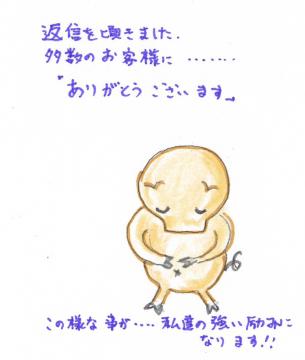 返信を頂きました.
多数のお客様に ‥‥‥.
『ありがとうございます』
この様な事が‥‥私達の強い励みに
なります.!!